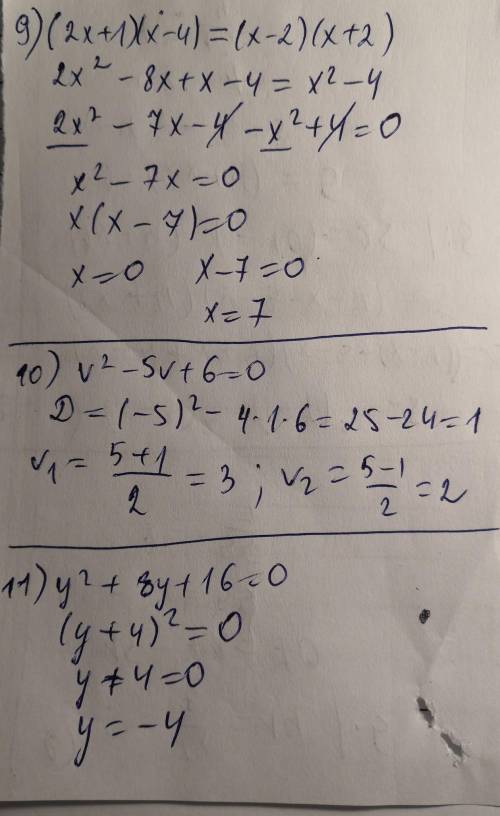 9) (2x+1)(x-4) = (x-2)(x+2)
2x² - 8x + x - 4 = x² - 4
2x² - 7x - 4 - x² + 4 = 0
x² - 7x = 0
x(x - 7) = 0
x = 0 x - 7 = 0
x = 7
10) v² - 5v + 6 = 0
D = (-5)² - 4·1·6 = 25 - 24 = 1
v₁ = (5+1)/2 = 3 ; v₂ = (5-1)/2 = 2
11) y² + 8y + 16 = 0
(y + 4)² = 0
y + 4 = 0
y = -4